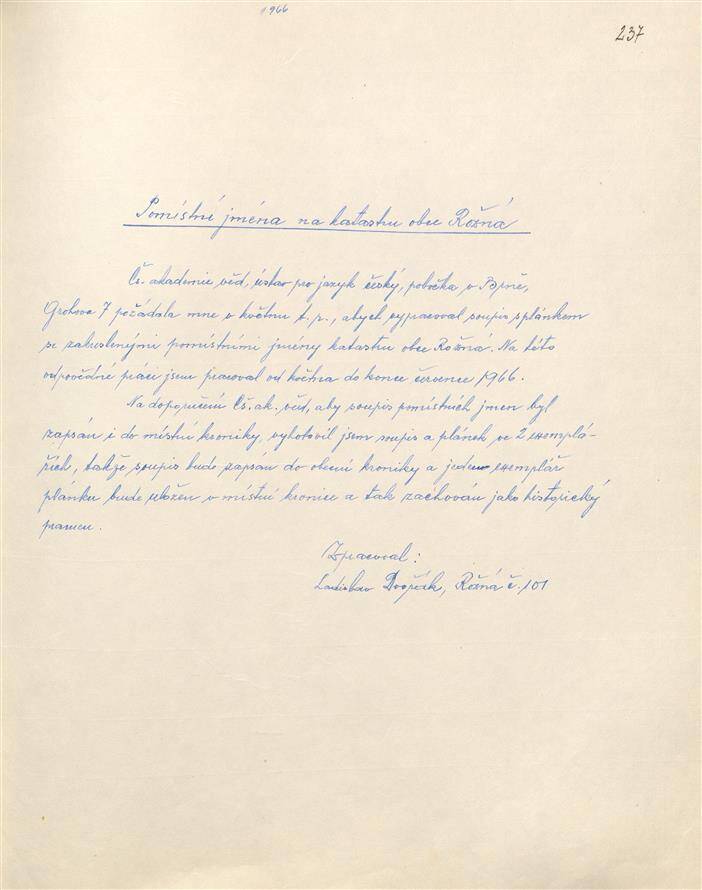 1966
237
Pomístní jména na katastru obce Rožná
Čs. akademie věd, ústav pro jazyk český, pobočka v Brně,
Grohova 7 požádala mne v květnu t. r., abych vypracoval soupis s plánkem
se zakreslenými pomístními jmény katastru obce Rožná. Na této
odpovědné práci jsem pracoval od května do konce července 1966.
Na doporučení Čs. ak. věd, aby soupis pomístních jmen byl
zapsán i do místní kroniky, vyhotovil jsem soupis a plánek ve 2 exemplá-
řích, takže soupis bude zapsán do obecní kroniky a jeden exemplář
plánku bude uložen v místní kronice a tak zachován jako historický
pramen.
Zpracoval:
Ladislav Dvořák, Rožná č. 101